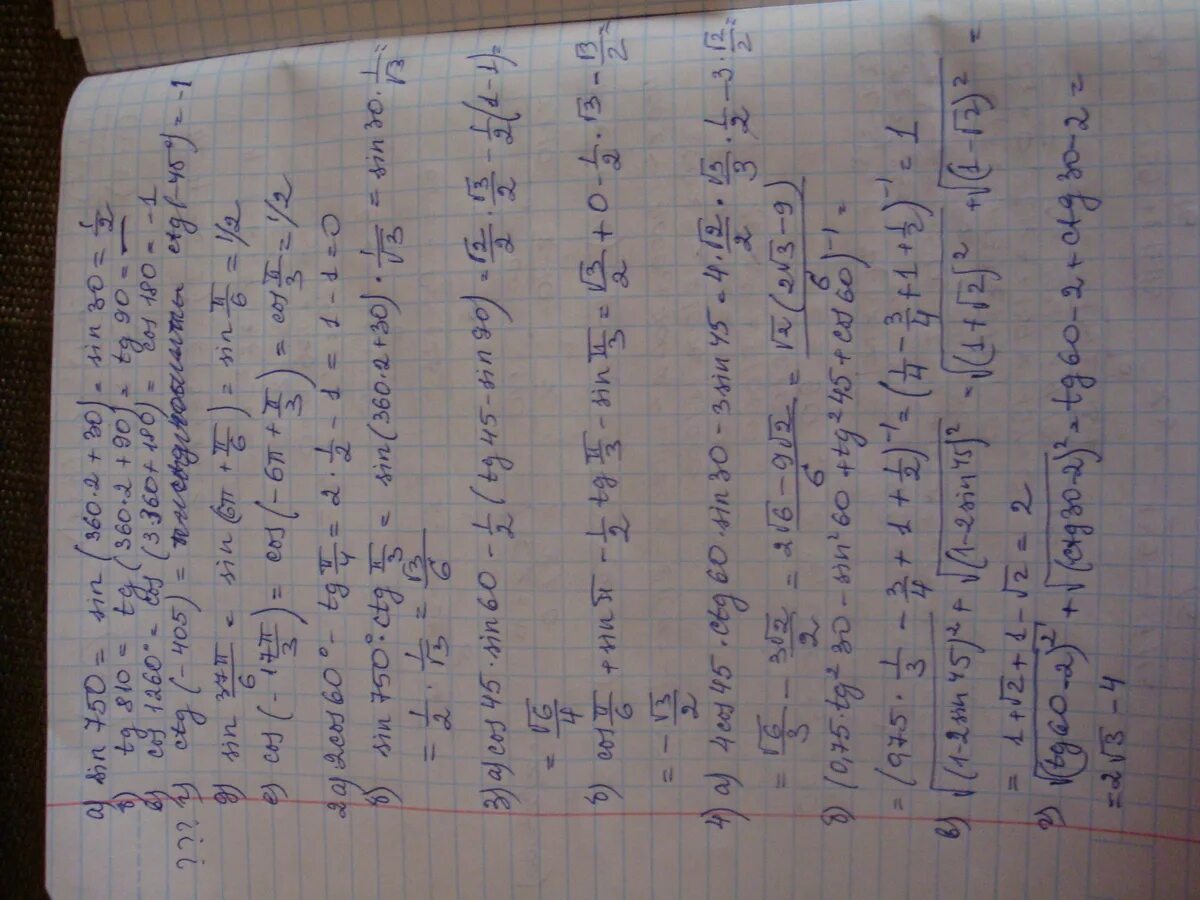 а) sin 750 = sin (360·2+30) = sin 30 = 1/2
б) tg 810 = tg (360·2+90) = tg 90 = —
в) cos 1260° = cos (3·360+180) = cos 180 = -1
??? г) ctg (-405) = ctg (-45°) = -1
д) sin 37π/6 = sin (6π + π/6) = sin π/6 = 1/2
е) cos (-17π/3) = cos (-6π + π/3) = cos π/3 = 1/2
2а) 2cos 60° - tg π/4 = 2 · 1/2 - 1 = 1 - 1 = 0
б) sin 750° · ctg π/3 = sin (360·2+30) · 1/√3 = sin 30 · 1/√3 =
= 1/2 · 1/√3 = √3/6
3) а) cos 45 · sin 60 - 1/2 (tg 45 - sin 90) = √2/2 · √3/2 - 1/2 (1-1) =
= √6/4
б) cos π/6 + sin π - 1/2 tg π/3 - sin π/3 = √3/2 + 0 - 1/2 · √3 - √3/2 =
= - √3/2
4) а) 4cos 45 · ctg 60 · sin 30 - 3 sin 45 = 4 · √2/2 · √3/3 · 1/2 - 3 · √2/2 =
= √6/3 - 3√2/2 = 2√6 - 9√2/6 = √2 (2√3 - 9)/6
б) (0,75 · tg² 30 - sin² 60 + tg² 45 + cos 60)⁻¹ =
= (0,75 · 1/3 - 3/4 + 1 + 1/2)⁻¹ = (1/4 - 3/4 + 1 + 1/2)⁻¹ = 1
в) √(1-2sin 45)² + √(1-2sin 45)² = √(1+√2)² + √(1-√2)² =
= 1+√2 + 1 - √2 = 2
г) √(tg 60-2)² + √(ctg 30-2)² = tg 60 - 2 + ctg 30 - 2 =
= 2√3 - 4